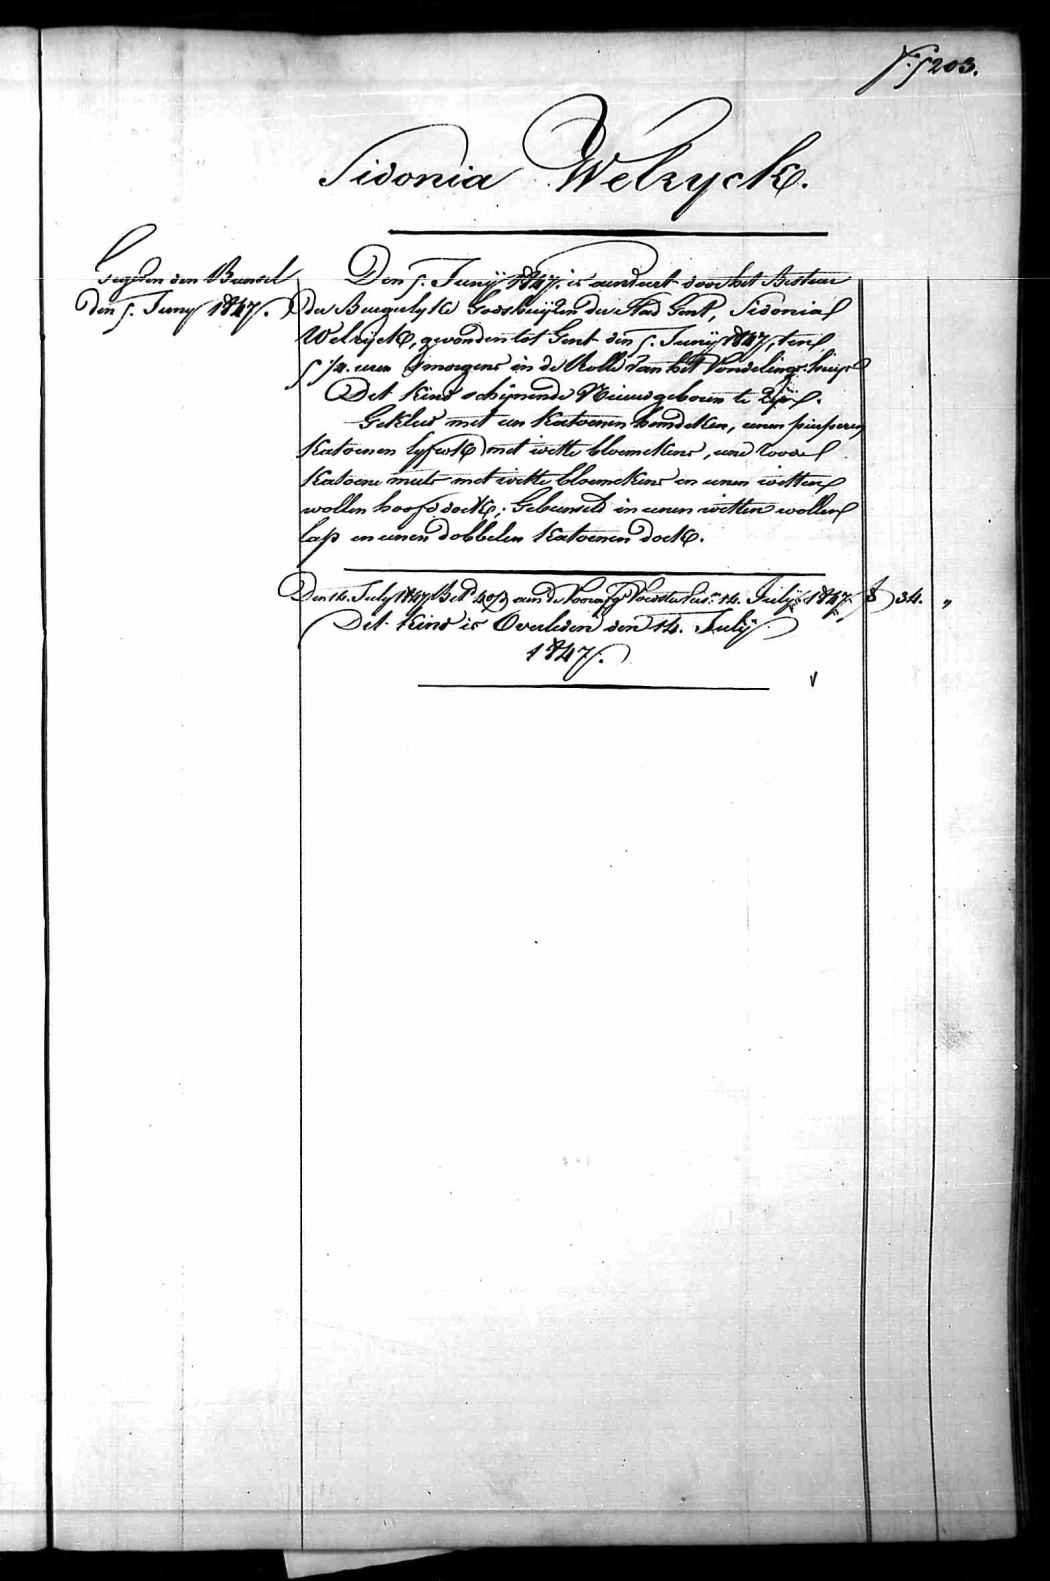 203.
Sidonia Welryck.
Gegeven den Bunsel
den 5. Juny 1847.
Den 5. Junij 1847. is aenveert door het Bestuur
der Burgerlyke Godshuijzen der Stad Gent, Sidonia
Welryck, gevonden tot Gent den 5. Junij 1847, ten
5 1/4. uren smorgens in de Rolle van het Vondelings-huijs
Dit Kind schijnende Nieuwgeboren te zijn.
Gekleed met een Katoenen hemdeken, eenen purperen
Katoenen lyfrok met witte bloemekens, eene roode
Katoene muts met witte bloemekens en eenen witten
wollen hoofddoek; Gebunseld in eenen witten wollen
lap en eenen dobbelen Katoenen doek.
Den 14. July 1847 aan de 14. July 1847. 8 34. "
Dit Kind is Overleden den 14. July
1847.